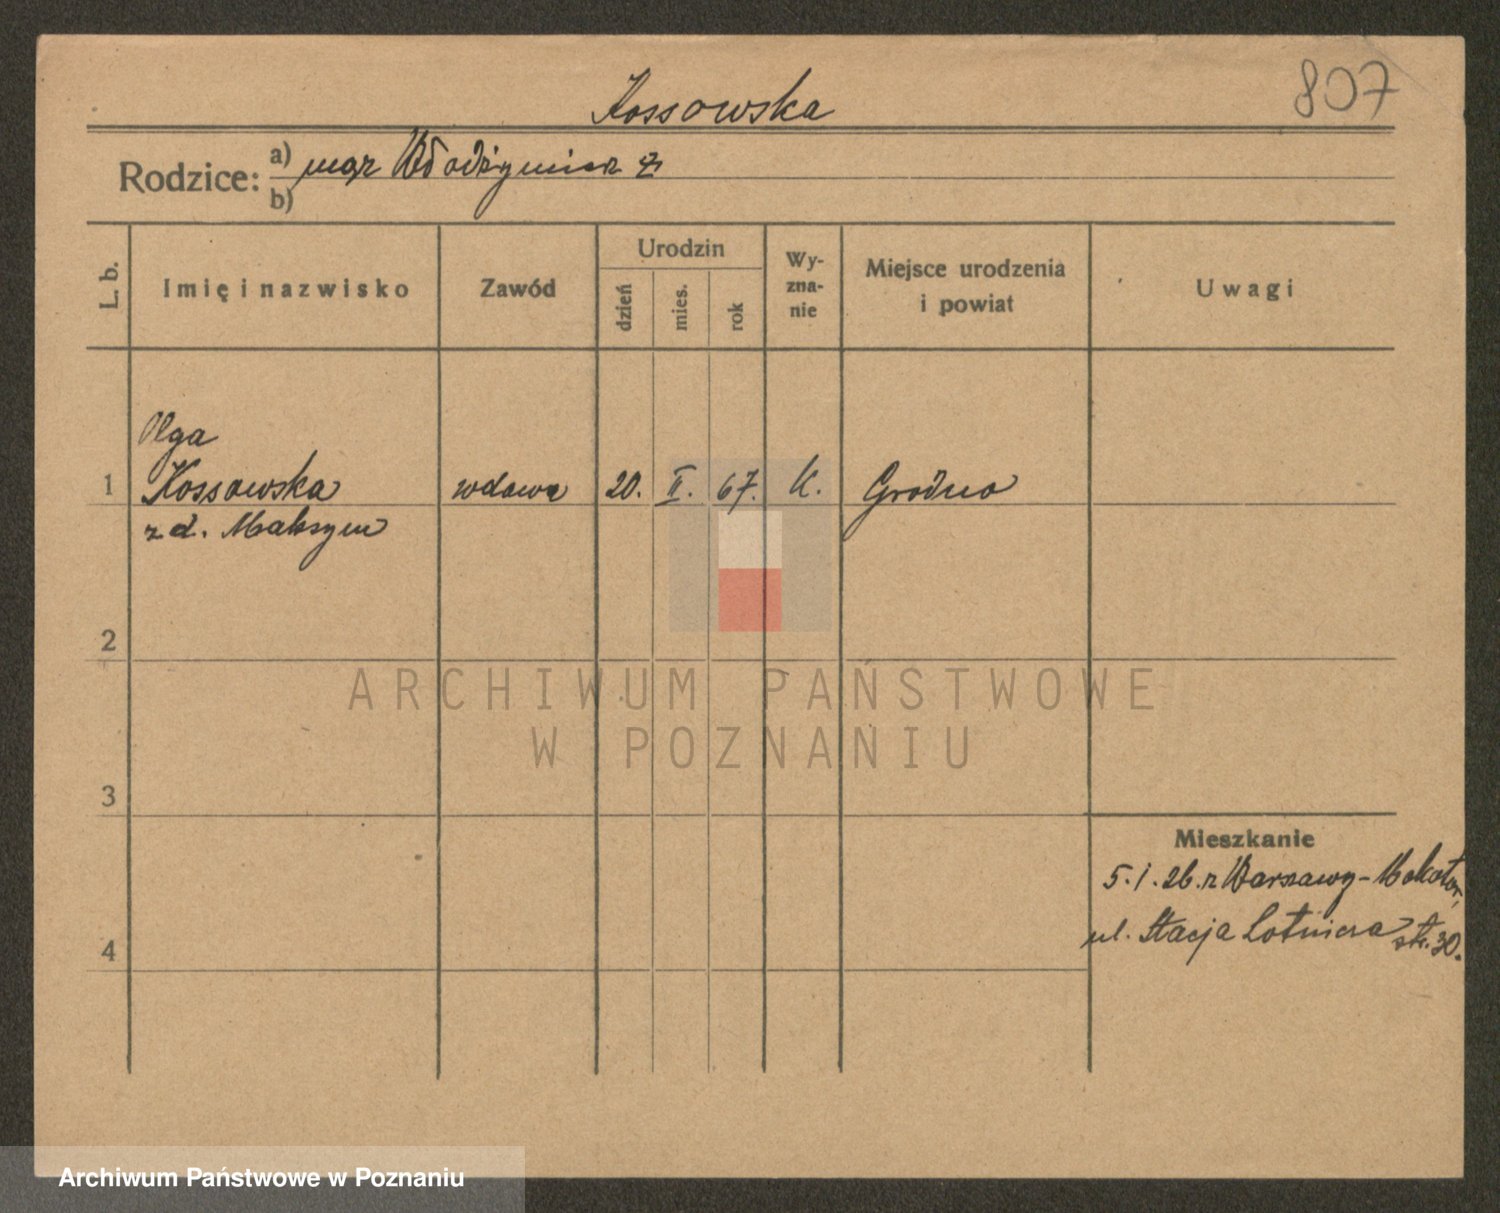 807
Kossowska
Rodzice: a) mąż Włodzimierz
b)
L. b.
Imię i nazwisko
Zawód
Urodzin
dzień
mies.
rok
Wy-
zna-
nie
Miejsce urodzenia
i powiat
Uwagi
Olga
1 Kossowska wdowa 20. II. 67. k. Grodno
z d. Maksym
2
3
4
Mieszkanie
5.1.26. z Warszawy - Mokotów,
ul. Stacja Lotnicza str. 30.
ARCHIWUM PAŃSTWOWE
W POZNANIU
Archiwum Państwowe w Poznaniu